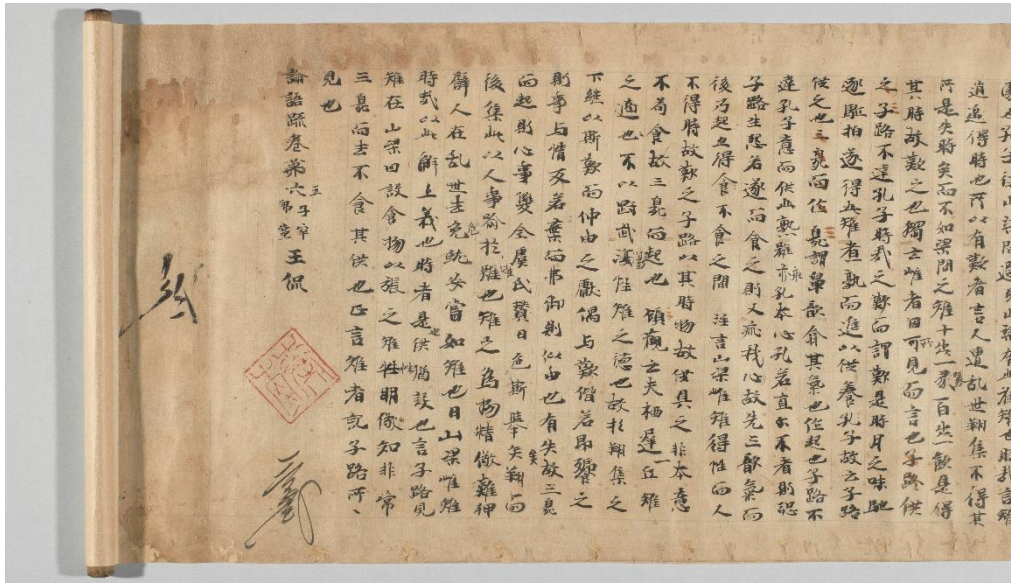 逍遥得時也所以有歎者言人遭乱世翔集不得其
所是失時矣而不如梁間之雉十步一啄百步一飲是得
其時故歎之也獨云雌者因所見而言也子路供
之子路不達孔子時哉之歎而謂歎是時月之味馳
逐駈拍遂得此雉者熟而進以供養孔子故云子路
供之也三臭而作 臭謂鼻歆翕其氣也作起也子路不
達孔子意而供此熟雉乖孔本心孔若直尓不看則恐
子路生怨若遂而食之則又乖我心故先三歆氣而
後乃起亙得食不食之間 注言山梁雌雉得性而人
不得時故歎之子路以其時物故供具之非本意
不苟食故三臭而起也 顧歡云夫栖遅一丘雉
之適也不以剛武傷性雉之德也故於翔集之
下継以斯歎而仲由之獻偶与歎偕若即饗之
則事与情反若棄而弗御則似由也有失故三臭
而起則心事雙全虞氏賛曰色斯舉矣翔而
後集此以人事喩於雉也雉之為物精儆難狎
譬人在乱世去危就安當如雉也曰山梁雌雉
時哉以此解上義也時者是供猶設也言子路見
雉在山梁因設食物以張之雉性明儆知非常
三臭而去不食其供也正言雌者記子路所
見也
論語疏卷第六 王侃